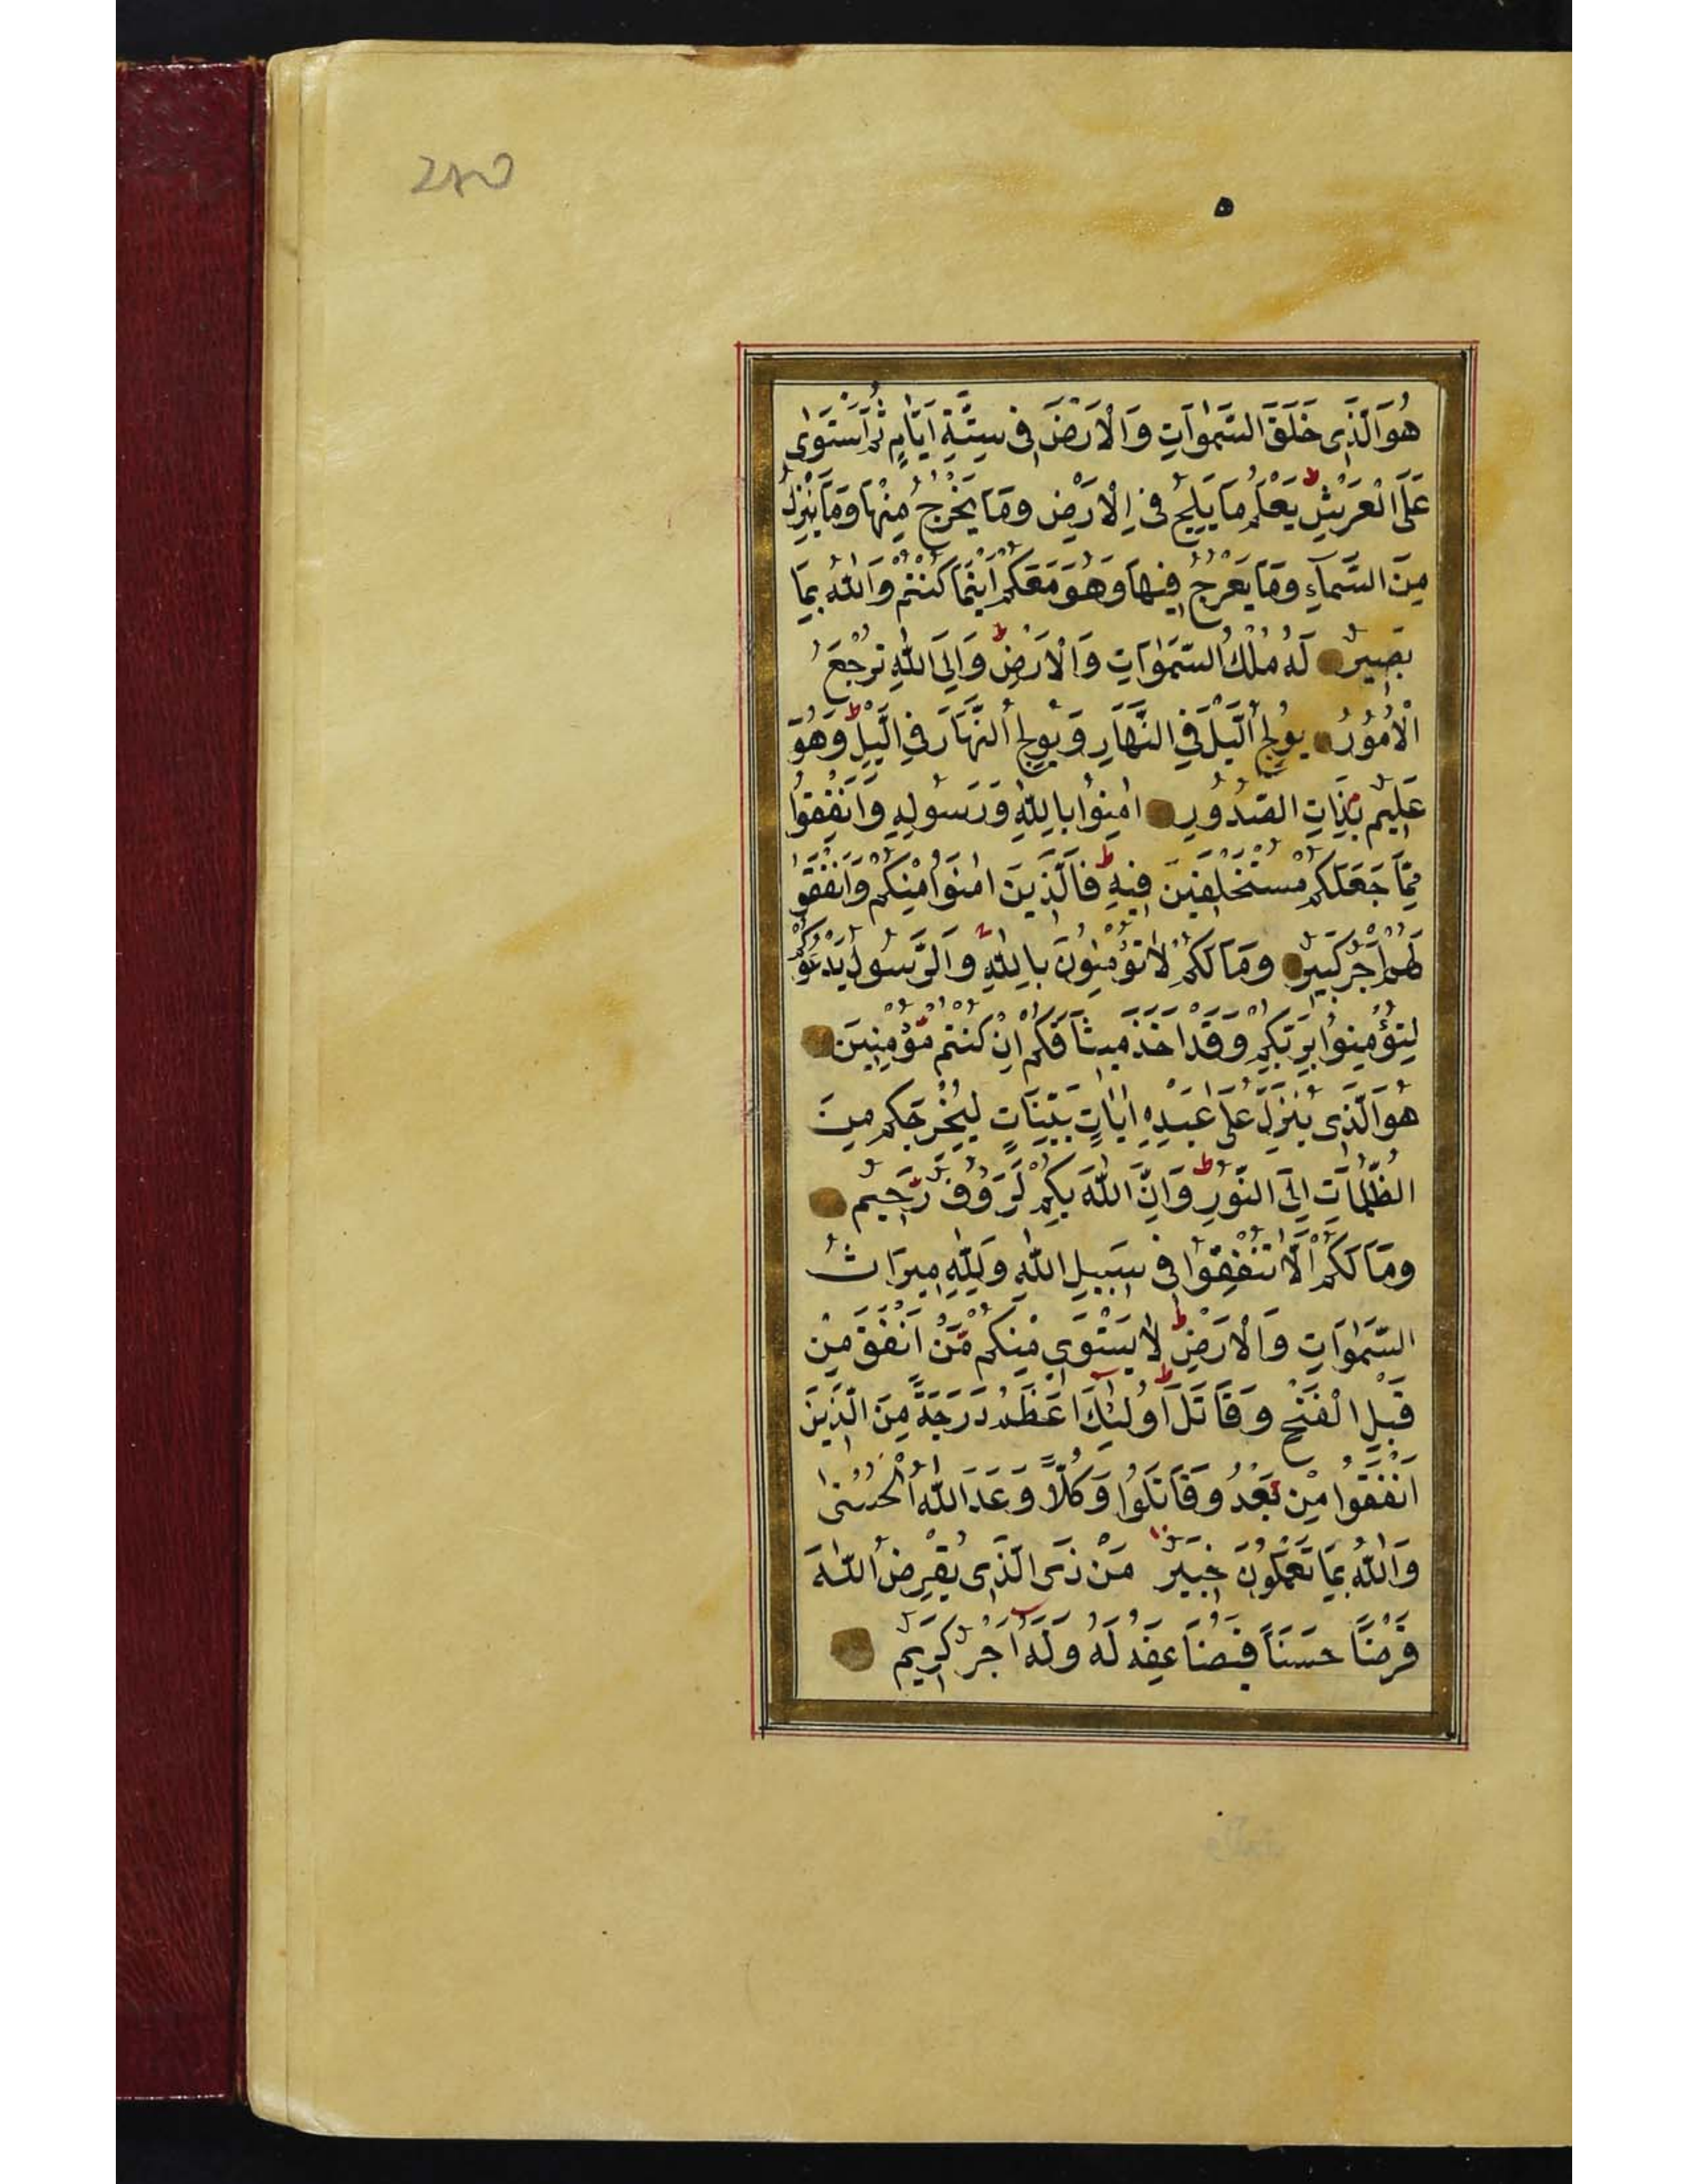 ۲۸۵
۵
هُوَ الَّذِى خَلَقَ السَّمٰوَاتِ وَالْاَرْضَ فِى سِتَّةِ اَيَّامٍ ثُمَّ اسْتَوٰى
عَلَى الْعَرْشِ ط يَعْلَمُ مَا يَلِجُ فِى الْاَرْضِ وَمَا يَخْرُجُ مِنْهَا وَمَا يَنْزِلُ
مِنَ السَّمَآءِ وَمَا يَعْرُجُ فِيهَا وَهُوَ مَعَكُمْ اَيْنَمَا كُنْتُمْ وَاللّٰهُ بِمَا
بَصِيرٌ لَهُ مُلْكُ السَّمٰوَاتِ وَالْاَرْضِ ط وَاِلَى اللّٰهِ تُرْجَعُ
الْاُمُوْرُ يُولِجُ الَّيْلَ فِى النَّهَارِ وَيُولِجُ النَّهَارَ فِى الَّيْلِ ط وَهُوَ
عَلِيمٌ بِذَاتِ الصُّدُورِ اٰمِنُوا بِاللّٰهِ وَرَسُولِهِ وَاَنْفِقُوا
مِمَّا جَعَلَكُمْ مُسْتَخْلَفِينَ فِيهِ ط فَالَّذِينَ اٰمَنُوا مِنْكُمْ وَاَنْفَقُوا
لَهُمْ اَجْرٌ كَبِيرٌ وَمَا لَكُمْ لَا تُؤْمِنُونَ بِاللّٰهِ وَالرَّسُولُ يَدْعُوكُمْ
لِتُؤْمِنُوا بِرَبِّكُمْ وَقَدْ اَخَذَ مِيثَاقَكُمْ اِنْ كُنْتُمْ مُؤْمِنِينَ
هُوَ الَّذِى يُنَزِّلُ عَلَى عَبْدِهِ اٰيَاتٍ بَيِّنَاتٍ لِيُخْرِجَكُمْ مِنَ
الظُّلُمَاتِ اِلَى النُّورِ ط وَاِنَّ اللّٰهَ بِكُمْ لَرَؤُفٌ رَحِيمٌ
وَمَا لَكُمْ اَلَّا تُنْفِقُوا فِى سَبِيلِ اللّٰهِ وَلِلّٰهِ مِيرَاثُ
السَّمٰوَاتِ وَالْاَرْضِ ط لَا يَسْتَوِى مِنْكُمْ مَنْ اَنْفَقَ مِنْ
قَبْلِ الْفَتْحِ وَقَاتَلَ ط اُولٰئِكَ اَعْظَمُ دَرَجَةً مِنَ الَّذِينَ
اَنْفَقُوا مِنْ بَعْدُ وَقَاتَلُوا وَكُلًّا وَعَدَ اللّٰهُ الْحُسْنٰى
وَاللّٰهُ بِمَا تَعْمَلُونَ خَبِيرٌ مَنْ ذَى الَّذِى يُقْرِضُ اللّٰهَ
قَرْضًا حَسَنًا فَيُضَاعِفَهُ لَهُ وَلَهُ اَجْرٌ كَرِيمٌ